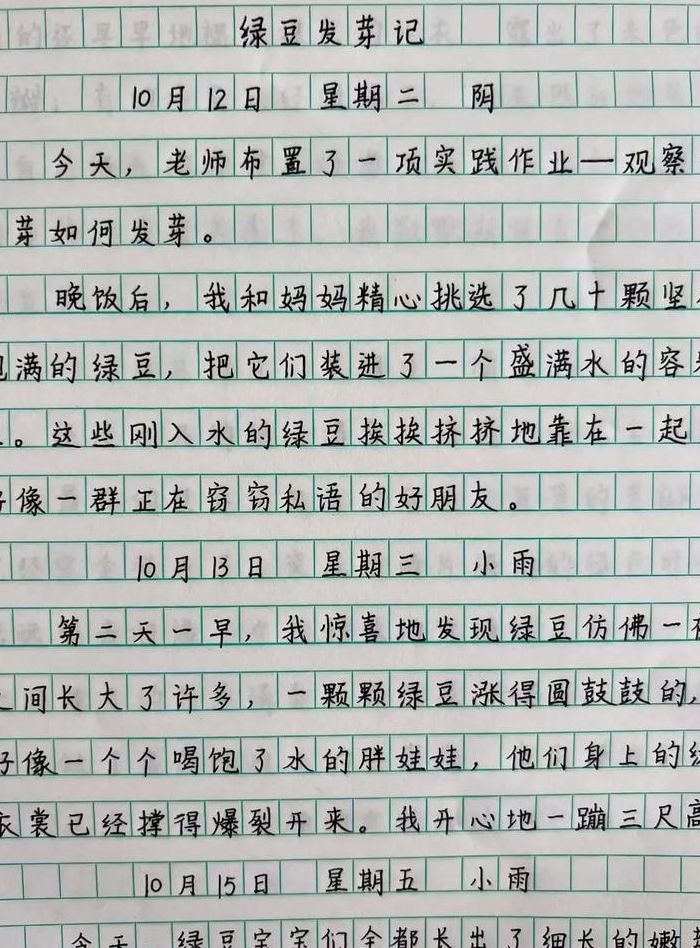 绿豆发芽记
10月12日 星期二 阴
今天，老师布置了一项实践作业—观察
芽如何发芽。
晚饭后，我和妈妈精心挑选了几十颗坚
满的绿豆，把它们装进了一个盛满水的容
。这些刚入水的绿豆挨挨挤挤地靠在一起
好像一群正在窃窃私语的好朋友。
10月13日 星期三 小雨
第二天一早，我惊喜地发现绿豆仿佛一夜
之间长大了许多，一颗颗绿豆涨得圆鼓鼓的，
好像一个个喝饱了水的胖娃娃，他们身上的绿
衣裳已经撑得爆裂开来。我开心地一蹦三尺高
10月15日 星期五 小雨
今天，绿豆宝宝们全都长出了细长的嫩